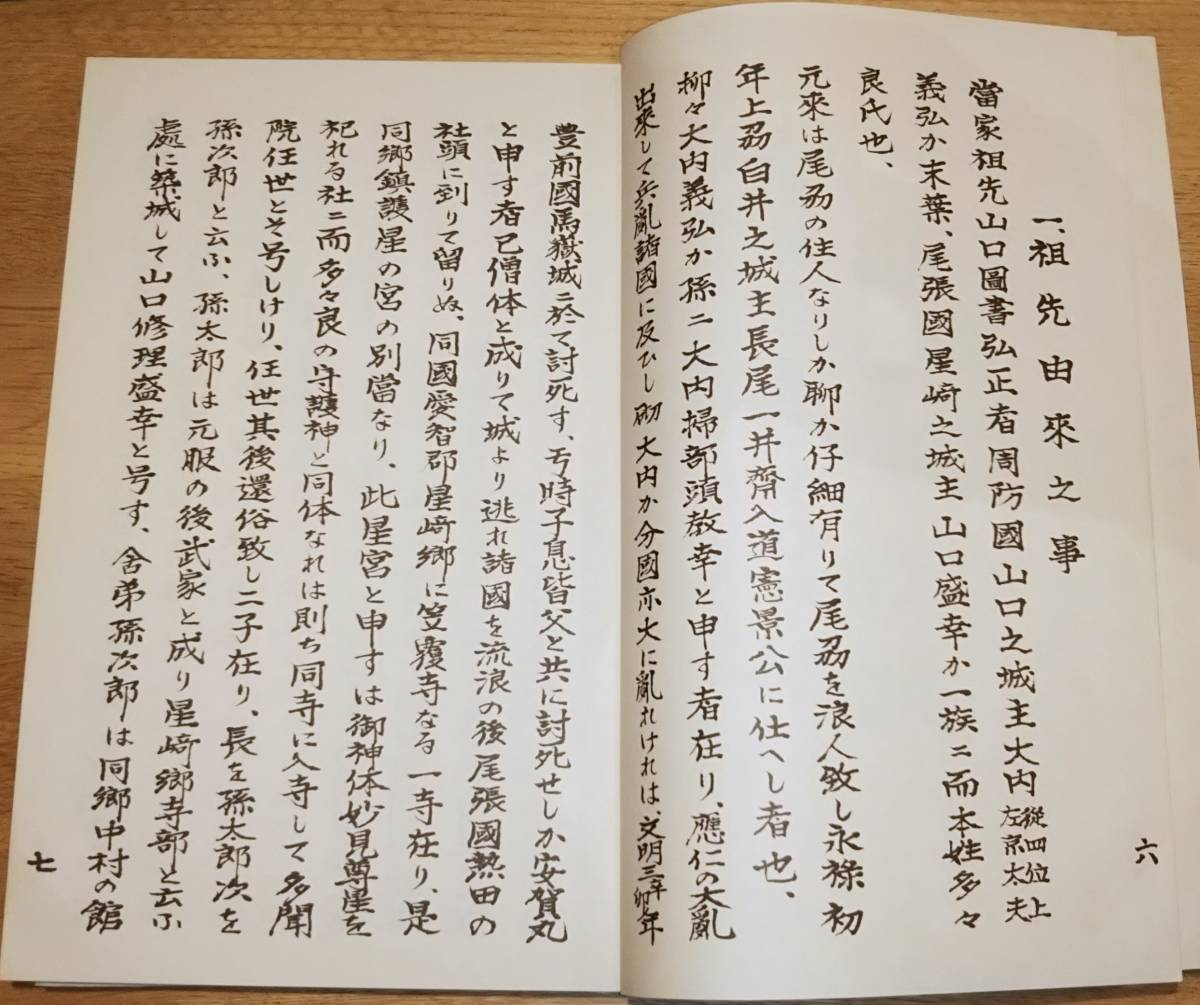 一、祖先由來之事
當家祖先山口圖書弘正者周防國山口之城主大内從四位上左京太夫
義弘か末葉、尾張國星﨑之城主山口盛幸か一族ニ而本姓多々
良氏也、
元來は尾刕の住人なりしか聊か仔細有りて尾刕を浪人致し永祿初
年上刕白井之城主長尾一井齋入道憲景公に仕へし者也、
抑々大内義弘か孫ニ大内掃部頭教幸と申す者在り、應仁の大亂
出來して兵亂諸國に及ひし砌大内か分國亦大に亂れけれは、文明三年卯年
六
豊前國馬嶽城ニ於て討死す、于時子息皆父と共に討死せしか安賀丸
と申す者已僧体と成りて城より逃れ諸國を流浪の後尾張國熱田の
社頭に到りて留りぬ、同國愛智郡星﨑郷に笠覆寺なる一寺在り、是
同郷鎮護星の宮の別當なり、此星宮と申すは御神体妙見尊星を
祀れる社ニ而多々良の守護神と同体なれは則ち同寺に入寺して多聞
院任世とそ号しけり、任世其後還俗致し二子在り、長を孫太郎次を
孫次郎と云ふ、孫太郎は元服の後武家と成り星﨑郷寺部と云ふ
處に築城して山口修理盛幸と号す、舎弟孫次郎は同郷中村の館
七